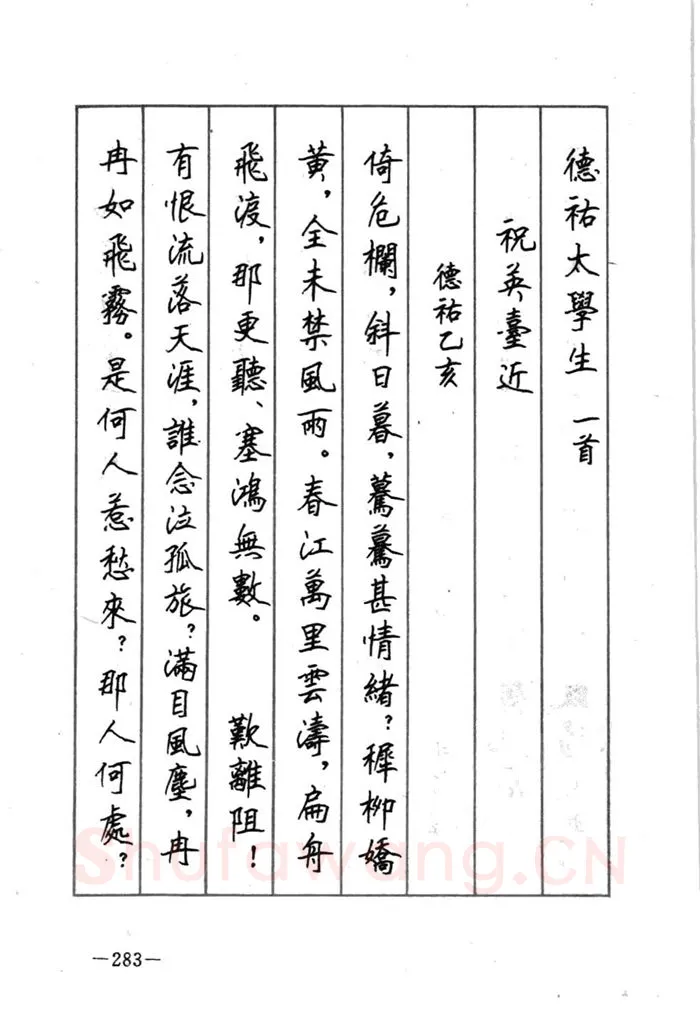 德祐太學生 一首
祝英臺近
德祐乙亥
倚危欄，斜日暮，驀驀甚情緒？穉柳嬌
黃，全未禁風雨。春江萬里雲濤，扁舟
飛渡，那更聽、塞鴻無數。 歎離阻！
有恨流落天涯，誰念泣孤旅？滿目風塵，冉
冉如飛霧。是何人惹愁來？那人何處？
Shufawang.CN
—283—